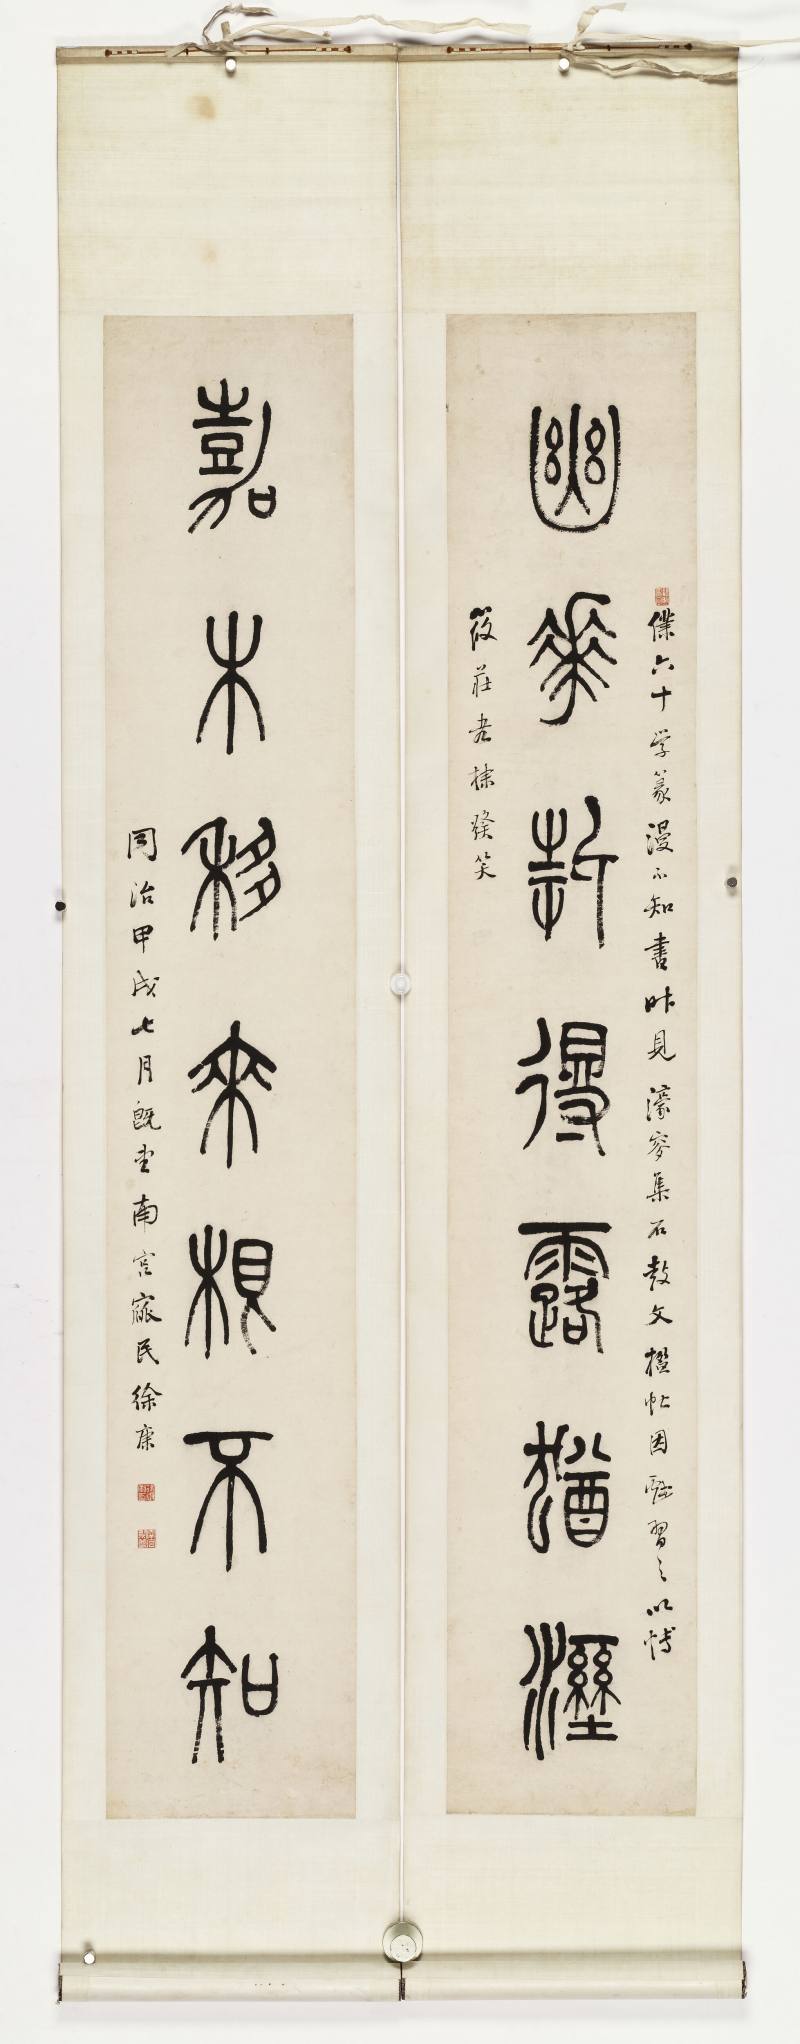 幽華折得露猶溼
僕六十学篆漫不知書昨見濠叟集石鼓文楹帖因
習之以博
筱莊老棣粲笑
嘉木移來根不知
同治甲戌七月既望南宫寂民徐康